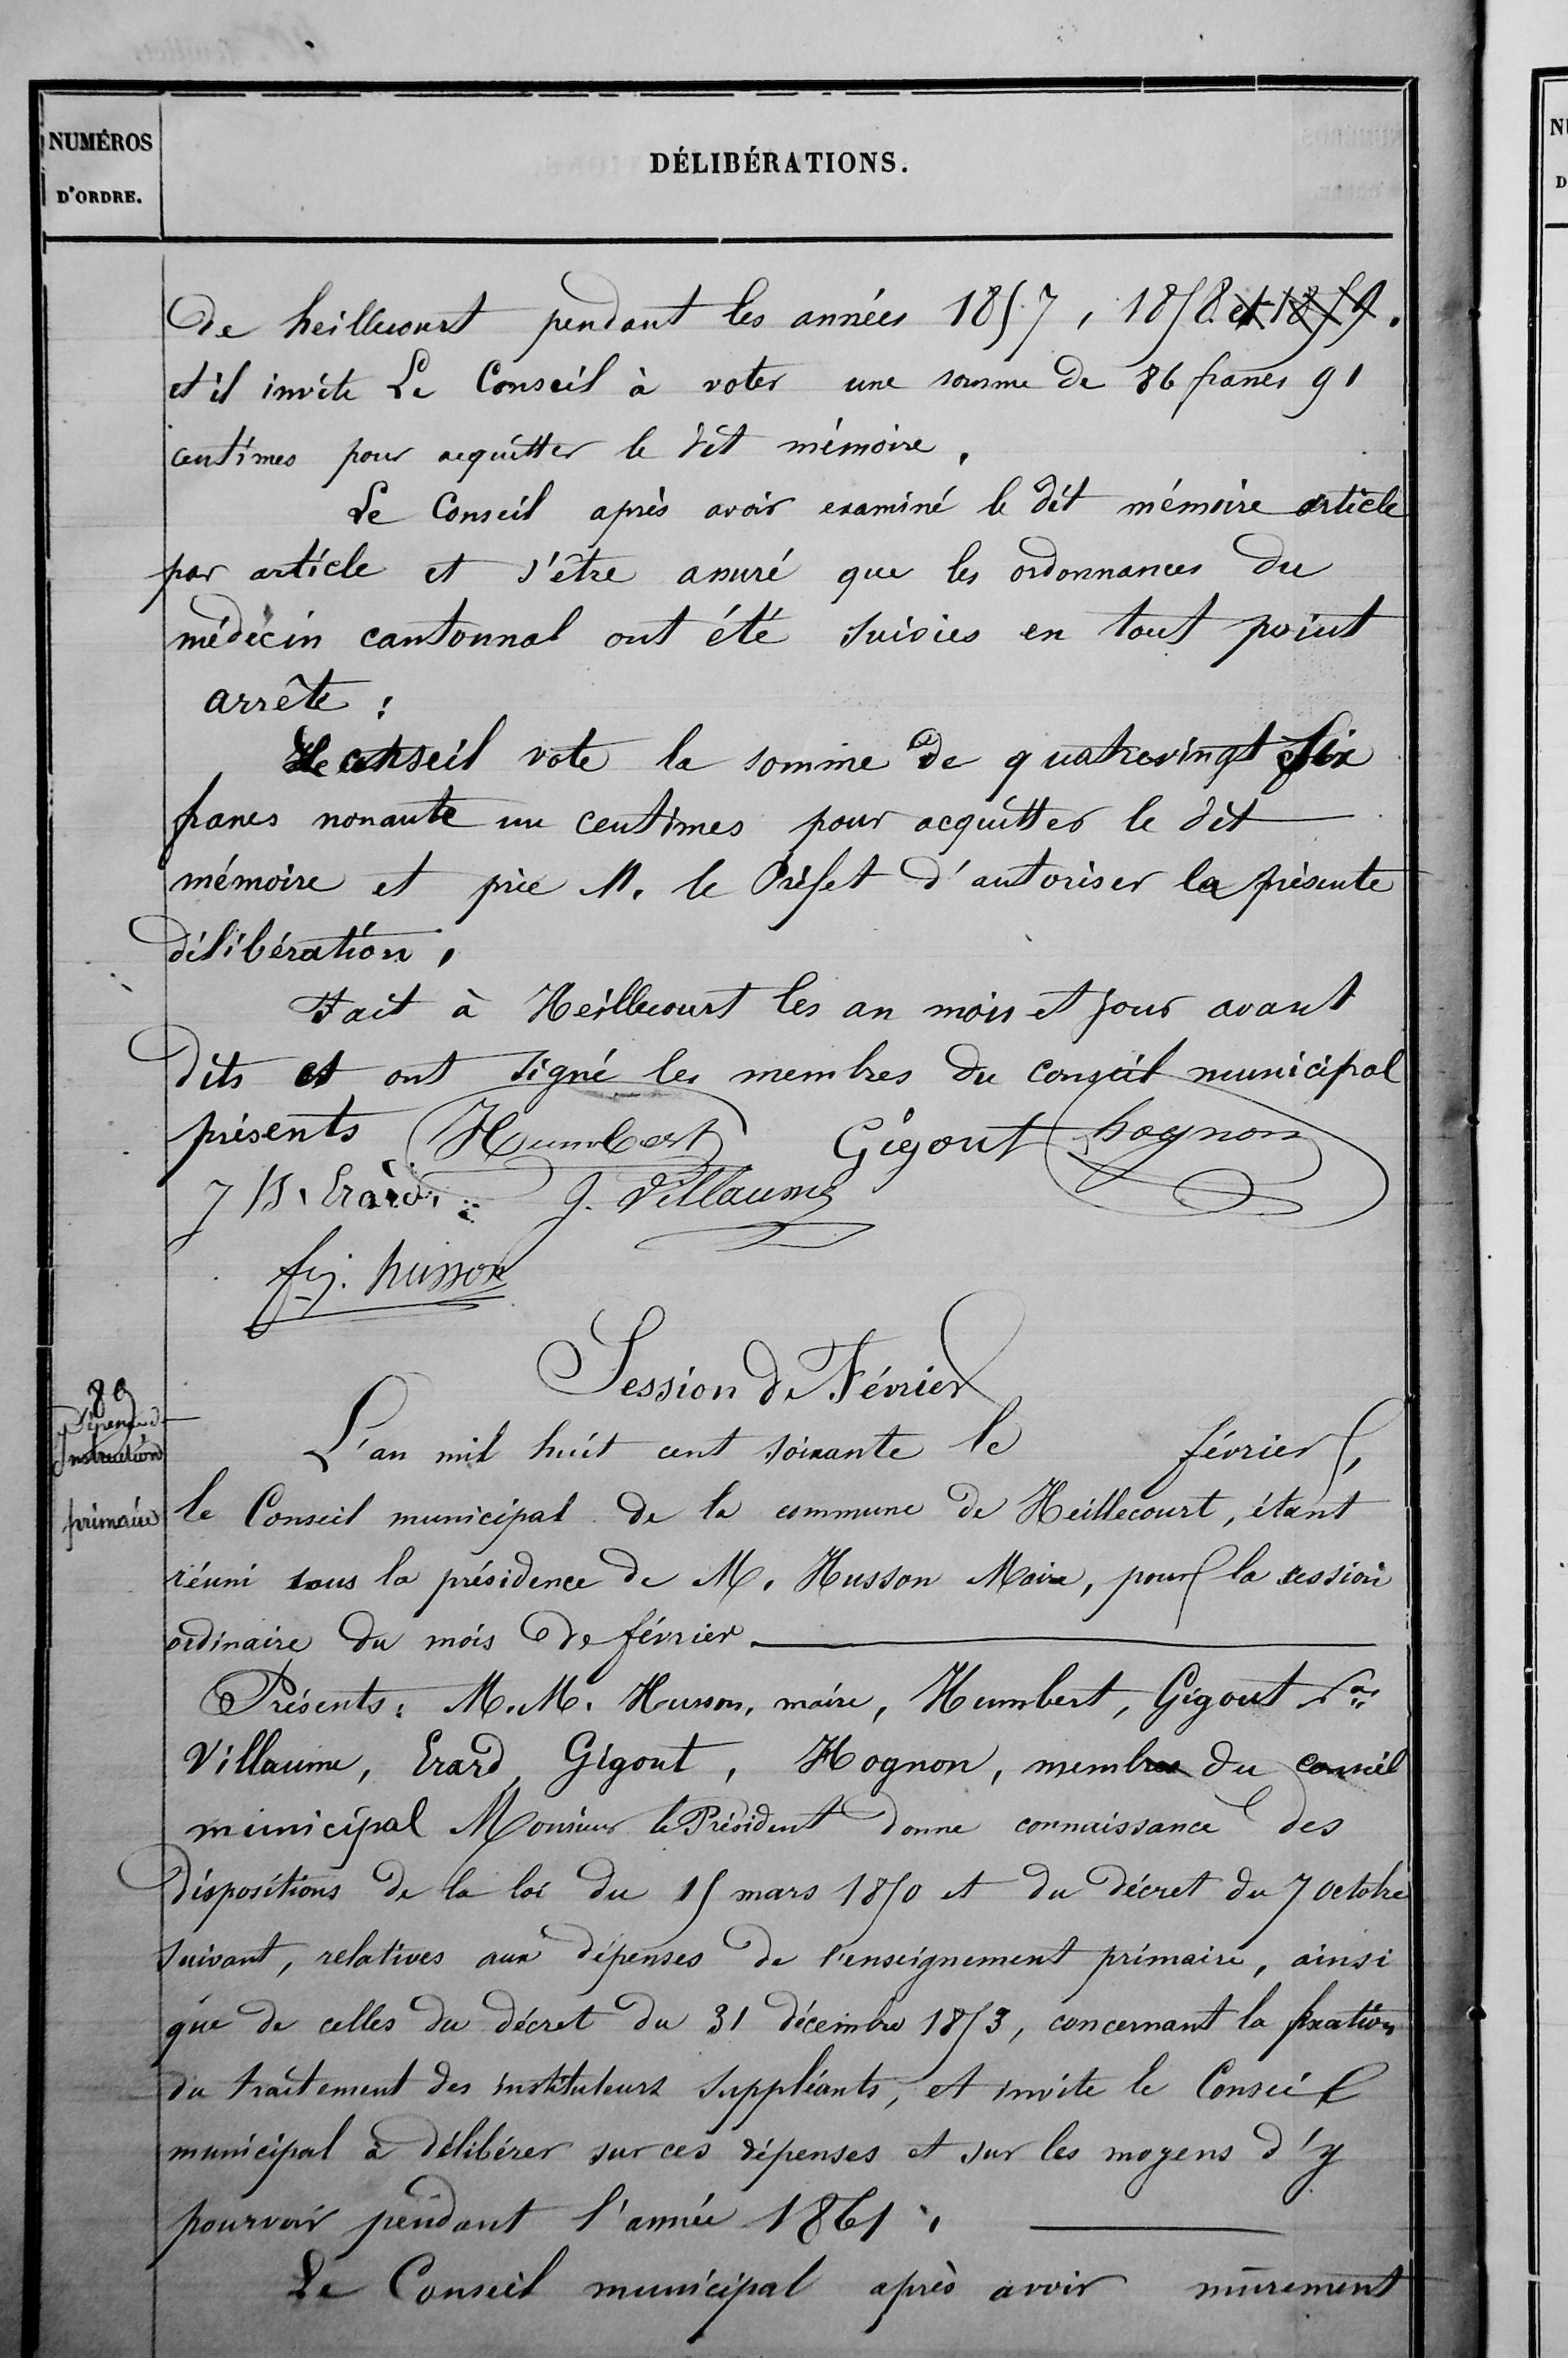 NUMÉROS
D'ORDRE.
DÉLIBÉRATIONS.
de heillecourt pendant les années 1857, 1858 et 1859.
et il invite Le Conseil à voter une somme de 86 francs 91
centimes pour acquitter le dit mémoire.
Le Conseil après avoir examiné le dit mémoire article
par article et s'être assuré que les ordonnances du
médecin cantonnal ont été suivies en tout point
arrête :
Le conseil vote la somme de quatrevingt six
francs nonante un centimes pour acquitter le dit
mémoire et prie M. le Préfet d'autoriser la présente
délibération.
Fait à Heillecourt les an mois et jour avant
dits et ont signé les membres du conseil municipal
présents Humbert Gigout hognon
J B. Erard. J. Villaume
husson
Session de Février
89
Dépense de
Instruction
primaire
L'an mil huit cent soixante le février,
le Conseil municipal de la commune de Heillecourt, étant
réuni sous la présidence de M. Husson Maire, pour la session
ordinaire du mois de février
Présents : M.M. Husson, maire, Humbert, Gigout
Villaume, Erard, Gigout, Hognon, membres du conseil
municipal Monsieur le Président donne connaissance des
dispositions de la loi du 15 mars 1850 et du décret du 7 octobre
suivant, relatives aux dépenses de l'enseignement primaire, ainsi
que de celles du décret du 31 décembre 1853, concernant la fixation
du traitement des instituteurs suppléants, et invite le Conseil
municipal à délibérer sur ces dépenses et sur les moyens d'y
pourvoir pendant l'année 1861.
Le Conseil municipal après avoir mûrement